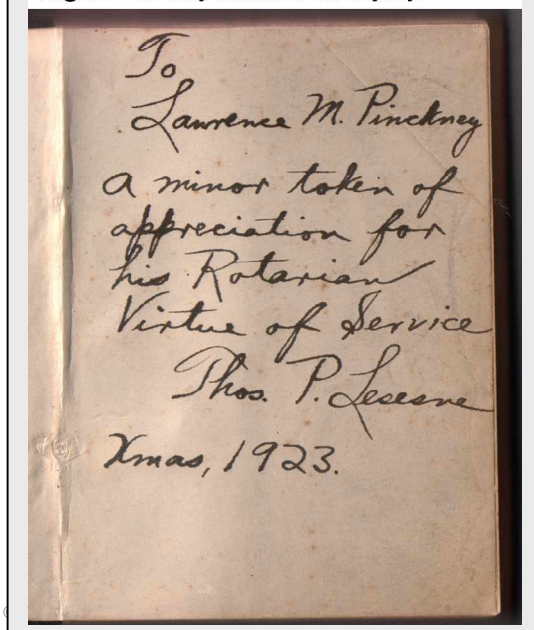 To
Lawrence M. Pinckney
a minor token of
appreciation for
his Rotarian
Virtue of Service
Thos. P. Lesesne
Xmas, 1923.